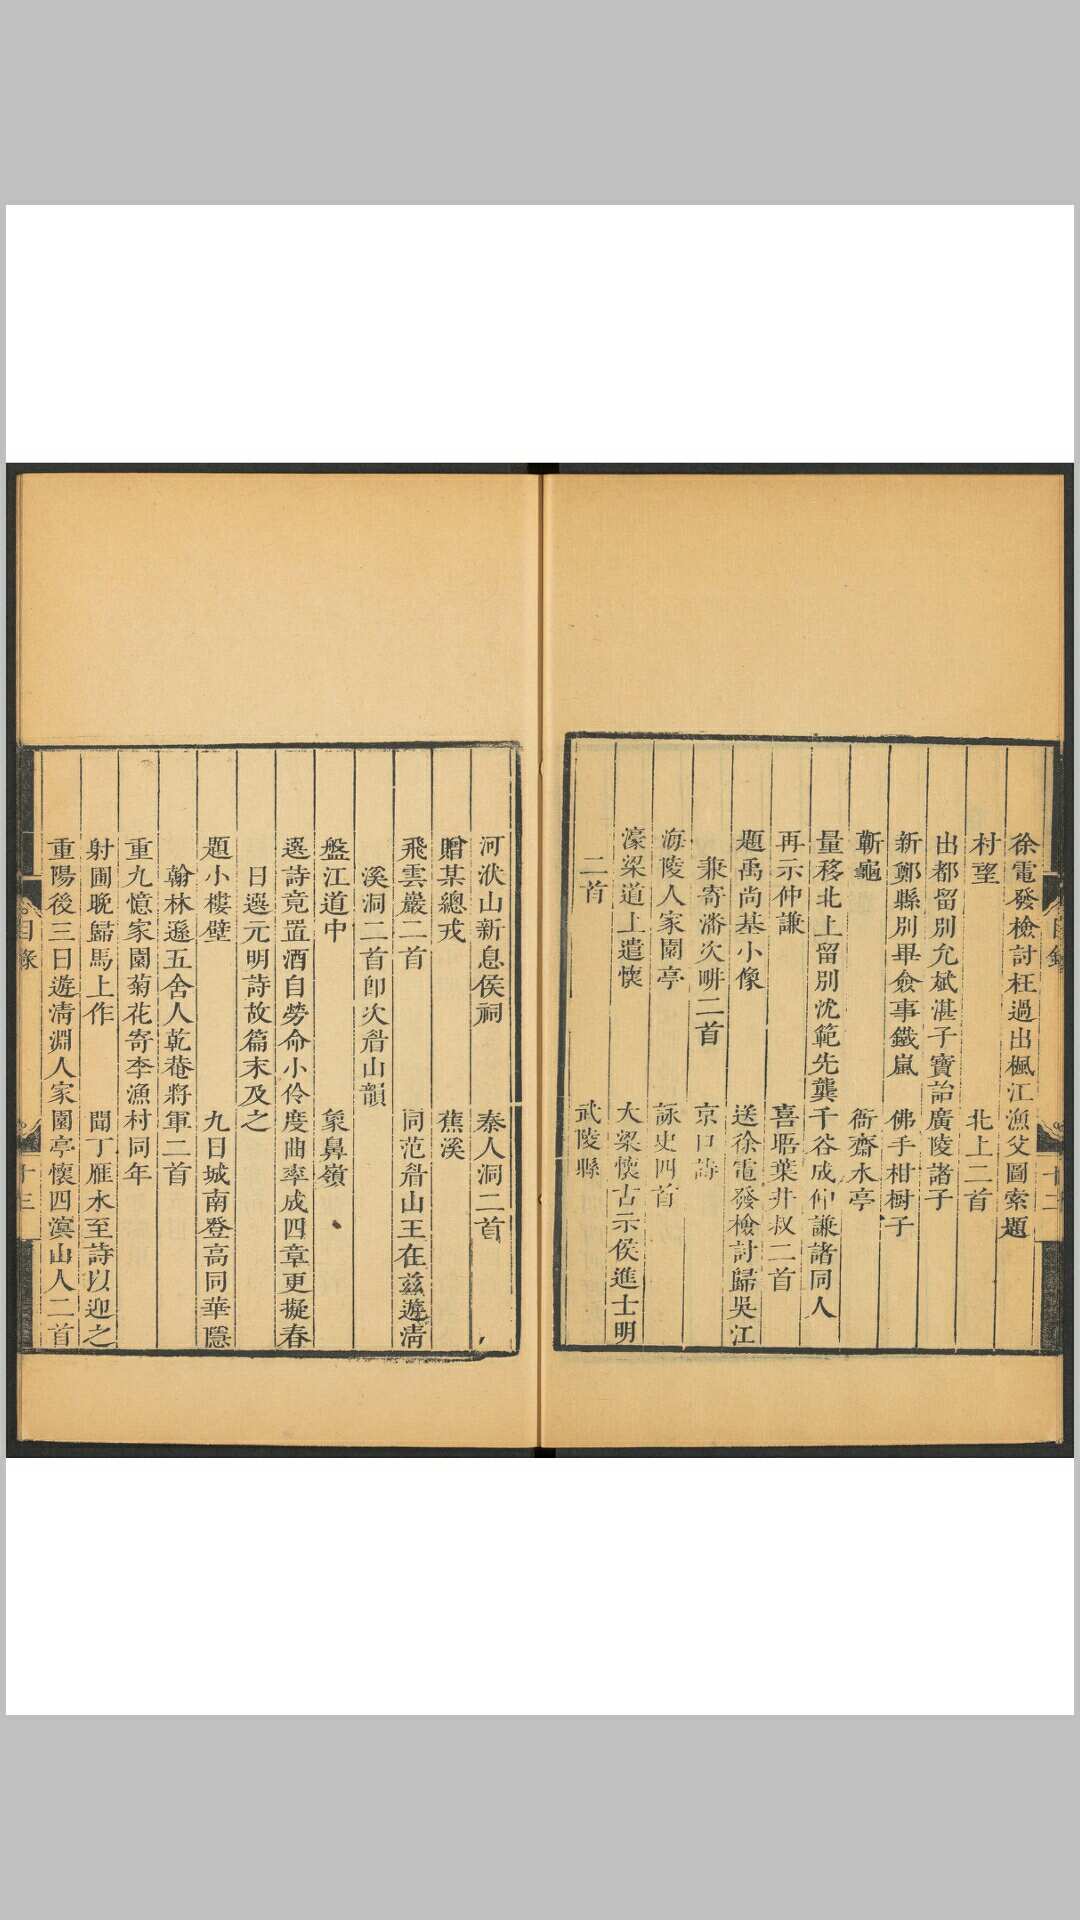 徐電發檢討枉過出楓江漁父圖索題
村望 北上二首
出都留別允斌湛子寶詒廣陵諸子
新鄭縣別畢僉事鐵嵐 佛手柑樹子
蘄龜 衙齋水亭
量移北上留別沈範先龔千谷成仲謙諸同人
再示仲謙 喜晤葉井叔二首
題禹尚基小像 送徐電發檢討歸吳江
兼寄潘次耕二首 京口詩
海陵人家園亭 詠史四首
濠梁道上遣懷 大梁懷古示侯進士明
二首 武陵縣
目錄 十二
河洑山新息侯祠 秦人洞二首
贈某總戎 蕉溪
飛雲巖二首 同范眉山王在茲遊清
溪洞二首即次眉山韻
盤江道中 象鼻嶺
選詩竟置酒自勞命小伶度曲率成四章更擬春
日選元明詩故篇末及之
題小樓壁 九日城南登高同華隱
翰林遜五舍人乾菴將軍二首
重九憶家園菊花寄李漁村同年
射圃晚歸馬上作 聞丁雁水至詩以迎之
重陽後三日遊清淵人家園亭懷四溟山人二首
目錄 十三